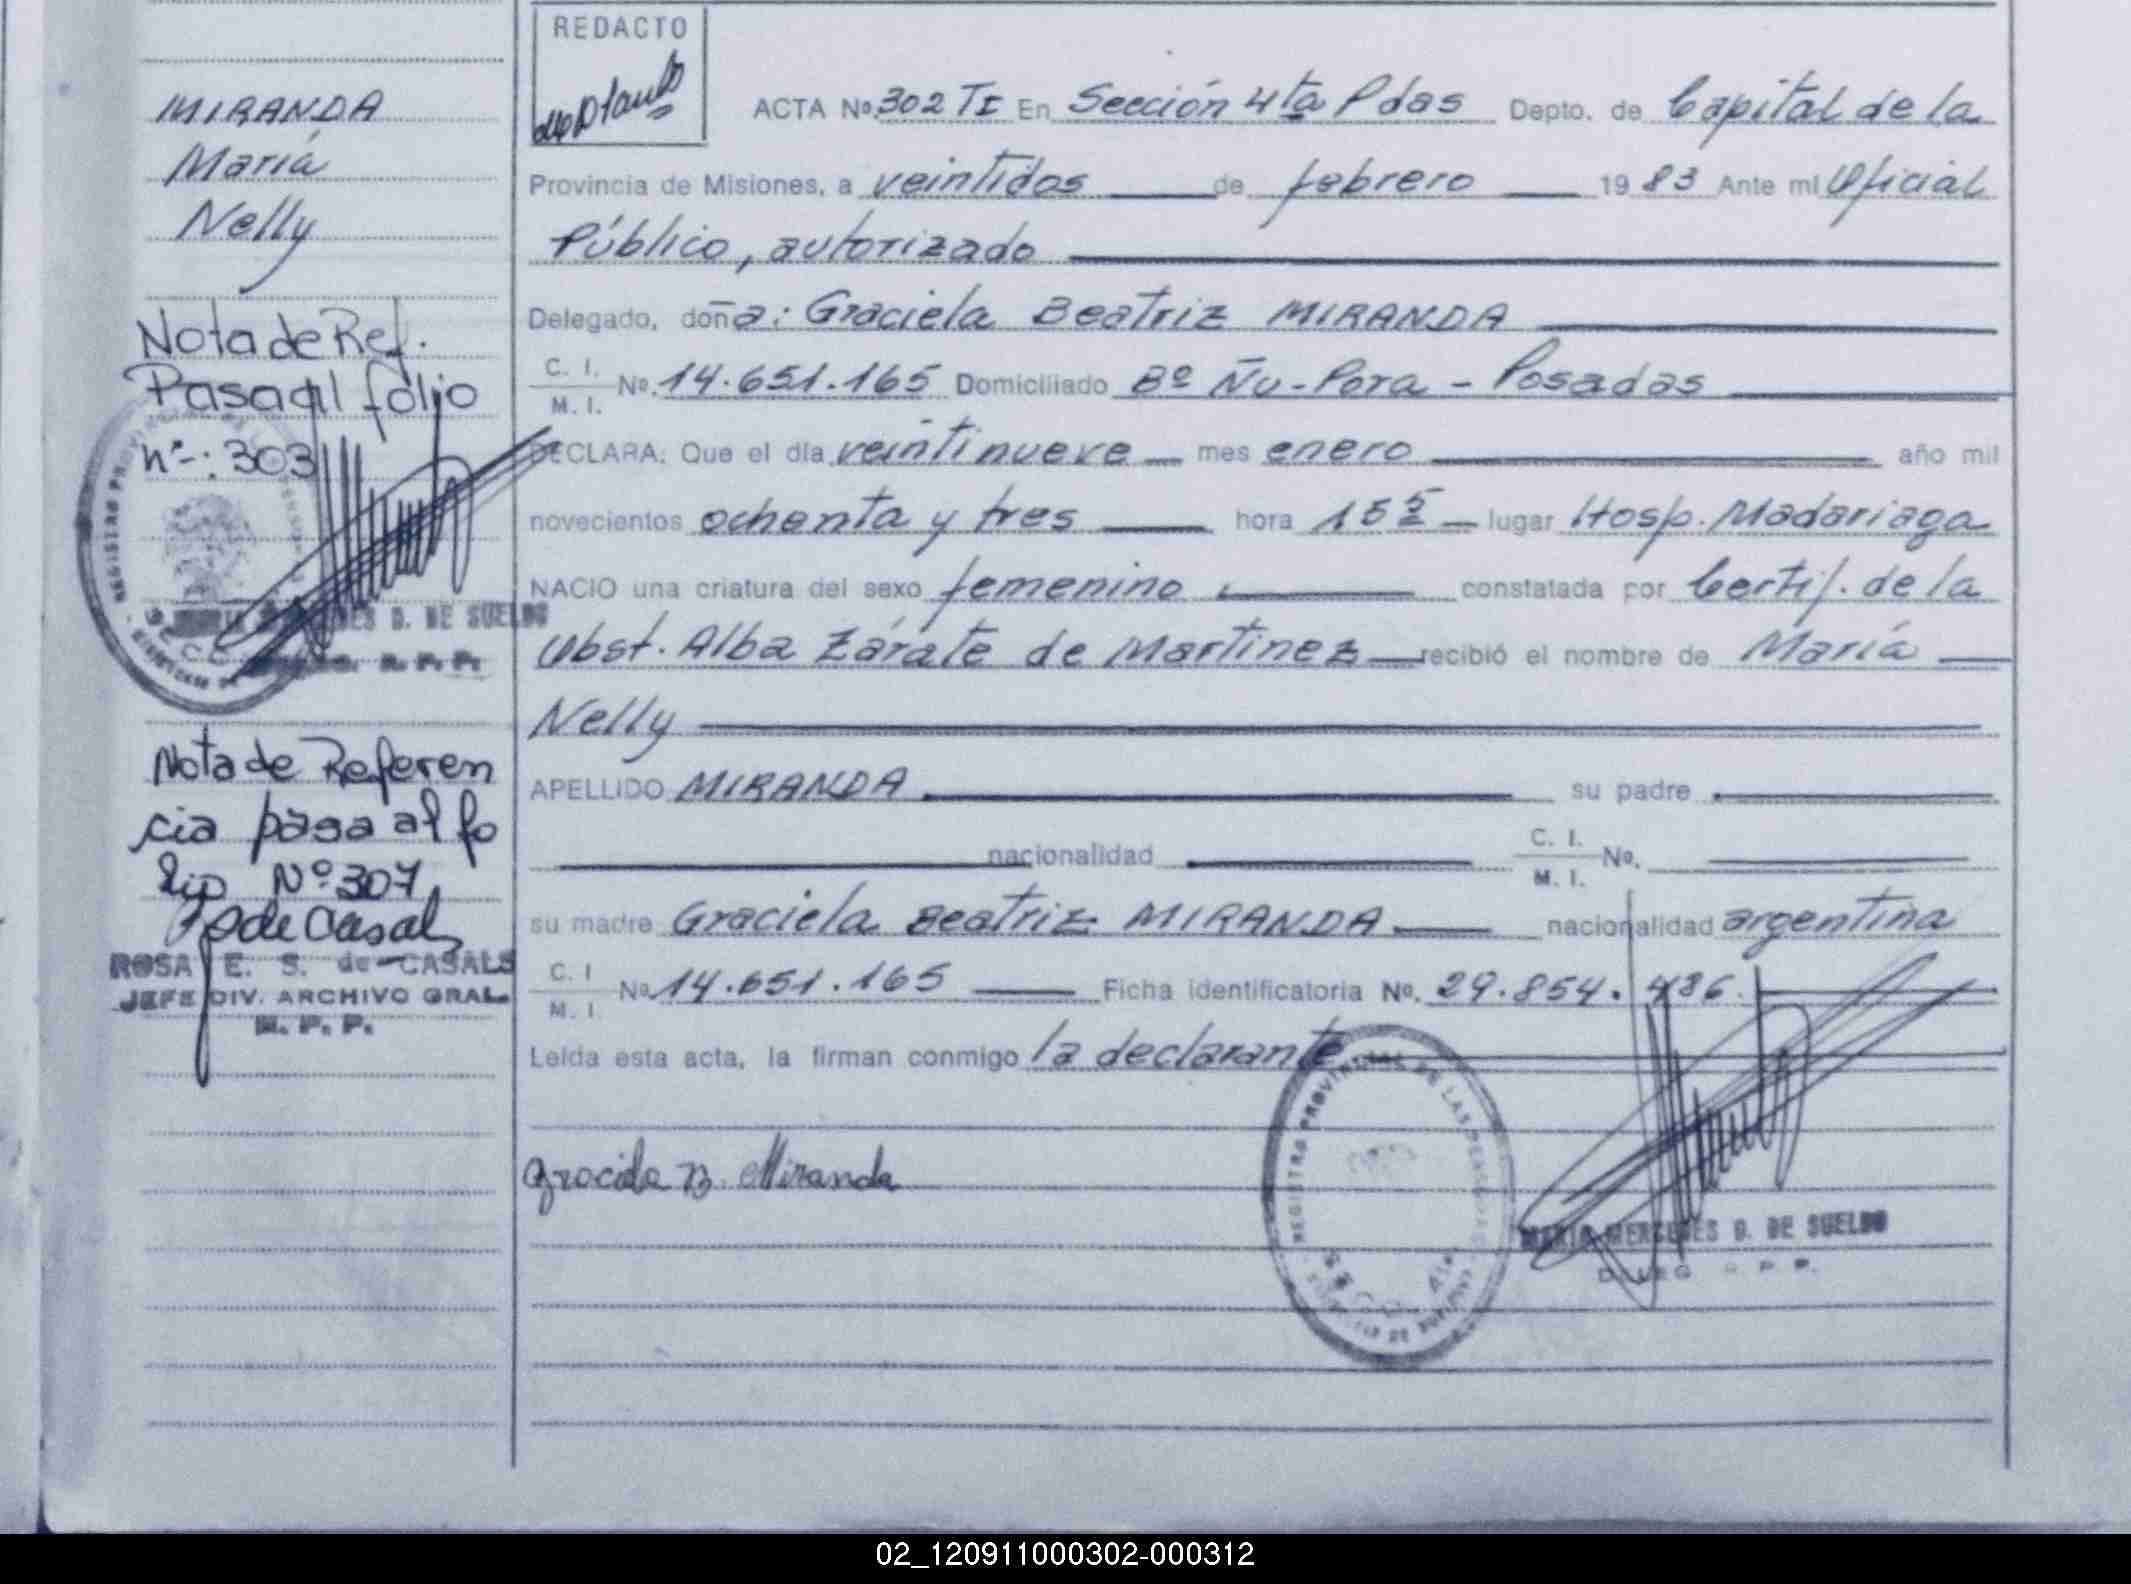 REDACTO
ACTA No. 302 TI En Sección 4ta Pdas Depto. de Capital de la
Provincia de Misiones, a veintidos de febrero 1983 Ante mi Oficial
Público, autorizado
Delegado, doña: Graciela Beatriz MIRANDA
C. I. M. I. No. 14.651.165 Domiciliado Bº Ñu-Pora - Posadas
DECLARA: Que el día veintinueve mes enero año mil
novecientos ochenta y tres hora 15 lugar Hosp. Madariaga
NACIO una criatura del sexo femenino constatada por Certif. de la
Obst. Alba Zárate de Martinez recibió el nombre de María
Nelly
APELLIDO MIRANDA su padre
nacionalidad C. I. M. I. No.
su madre Graciela Beatriz MIRANDA nacionalidad argentina
C. I M. I. No. 14.651.165 Ficha identificatoria No. 29.854.486.
Leída esta acta, la firman conmigo la declarante
Graciela B. Miranda
REGISTRO PROVINCIAL DE LAS PERSONAS
MARIA MERCEDES D. DE SUELDO
MIRANDA
María
Nelly
Nota de Ref.
Pasa al folio
nº: 303
REGISTRO
D. DE SUELDO
Nota de Referen
cia pasa al fo
lio Nº 307
de Casals
ROSA E. S. de CASALS
JEFE DIV. ARCHIVO GRAL.
R. P. P.
02_120911000302-000312